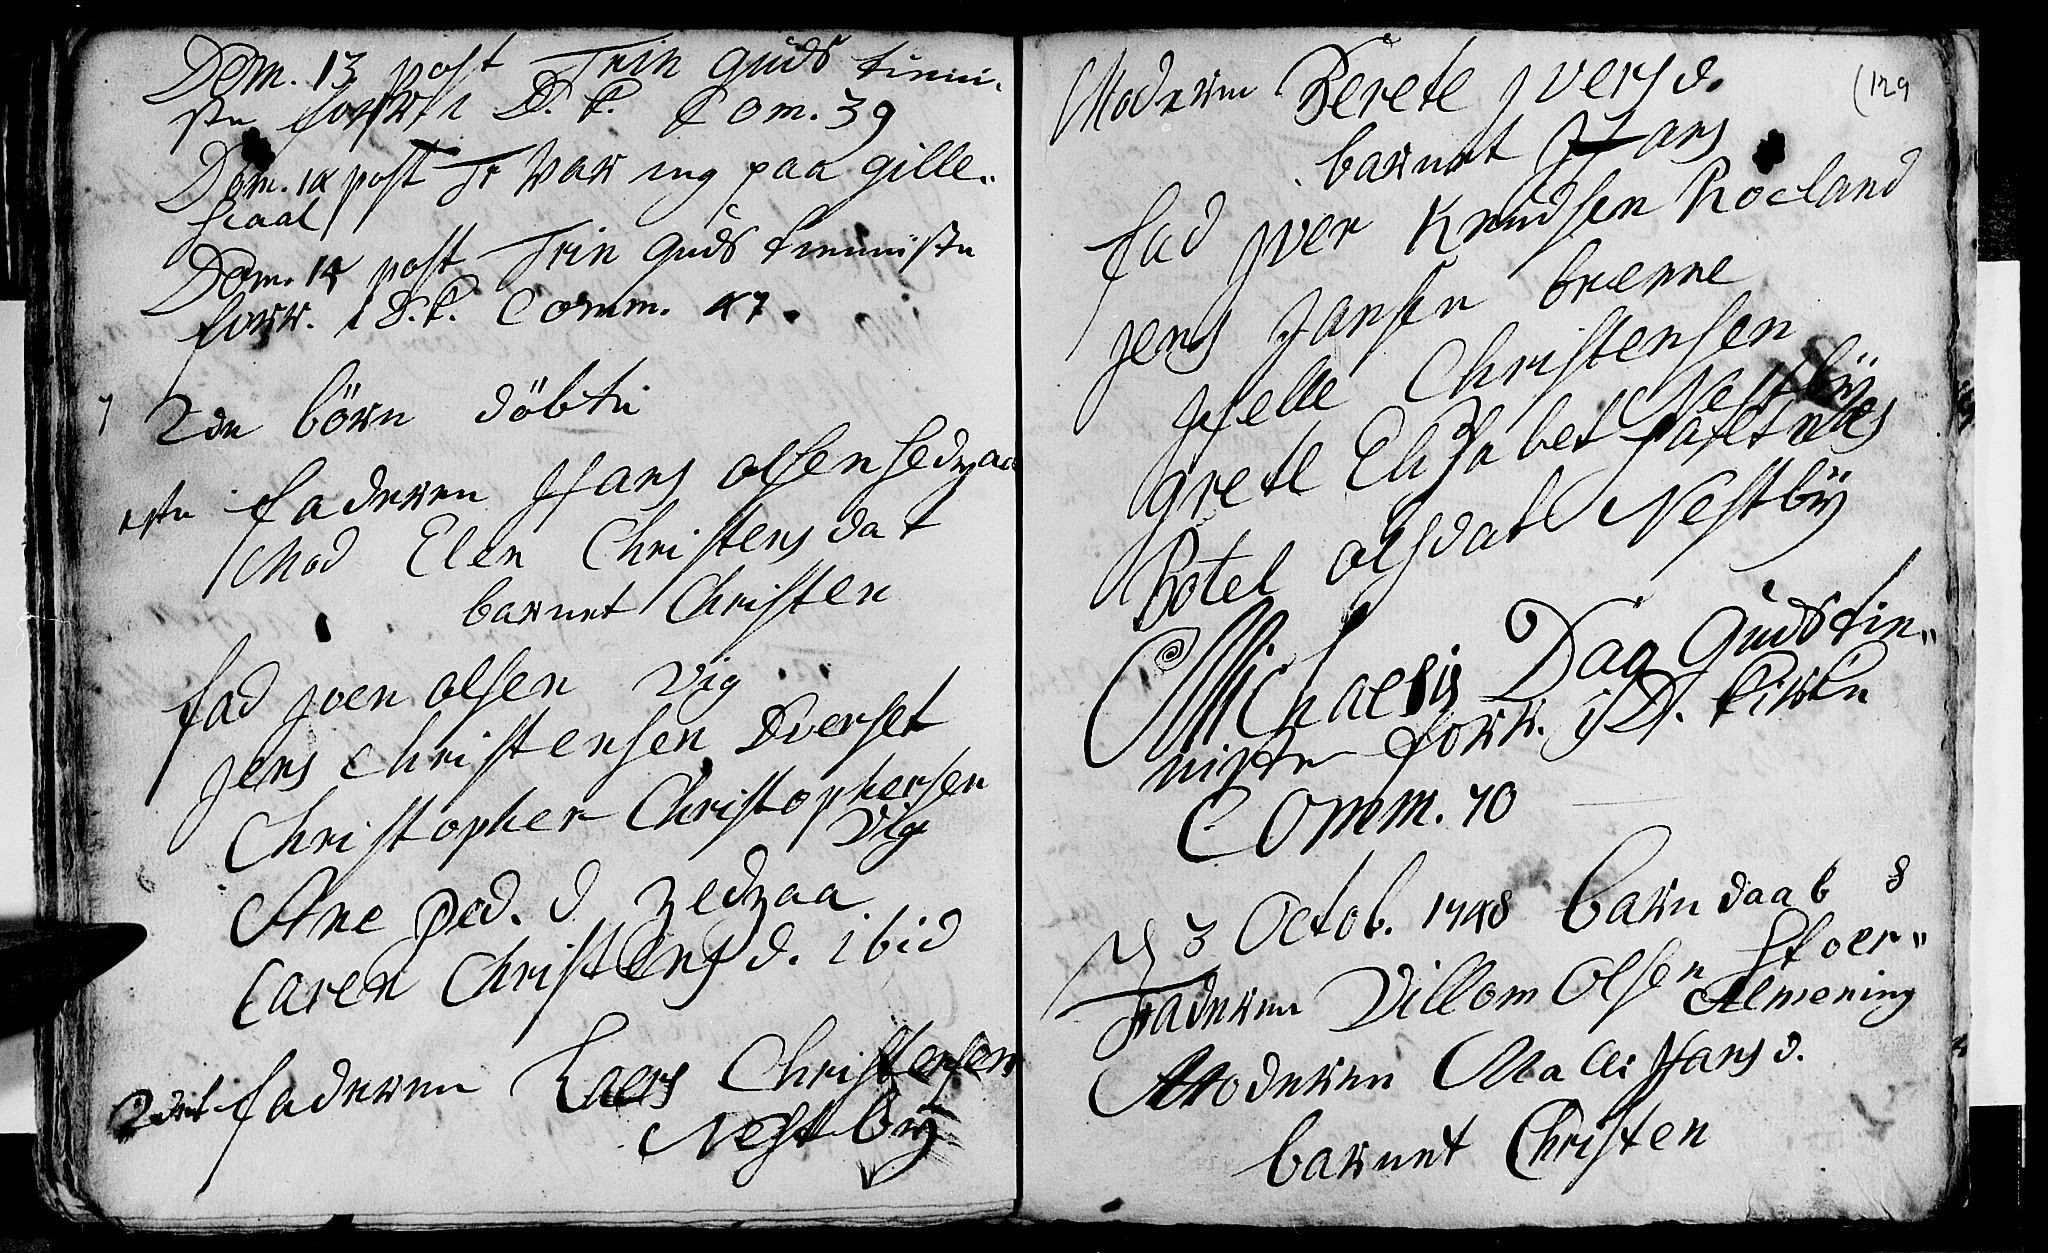 Dom. 13 post Trin guds tienni-
ste forr. i D. k. Com. 39
Dom. 14 post Tr var ieg paa gille-
skaal
Dom. 14 post Trin guds tienniste
forr. i D. k. Comm. 47.
7 2de börn döbte
1ste faderen Hans olsen
Mod Elen Christensdat
barnet Christen
fad joen olsen Vig
jens Christensen Dverset
Christopher Christophersen
Vig
Ane ped. d
Caren Christensd. ibid
2det faderen Laers Christensen
Nestbÿ
(129
Moderen Berete jversd.
barnet Hans
fad jver Knudsen Roeland
jens Hansen
Helle Christensen
Nestbÿ
grete Elisabet
Botel olsdat Nestbÿ
Michaelis Dag Guds tie-
niste forr. i D. kirke
Comm. 70
D 3 Octob. 1748 barn daab 8
Faderen Villom Olsen Stoer-
Almening
Moderen Malli Hansd.
barnet Christen